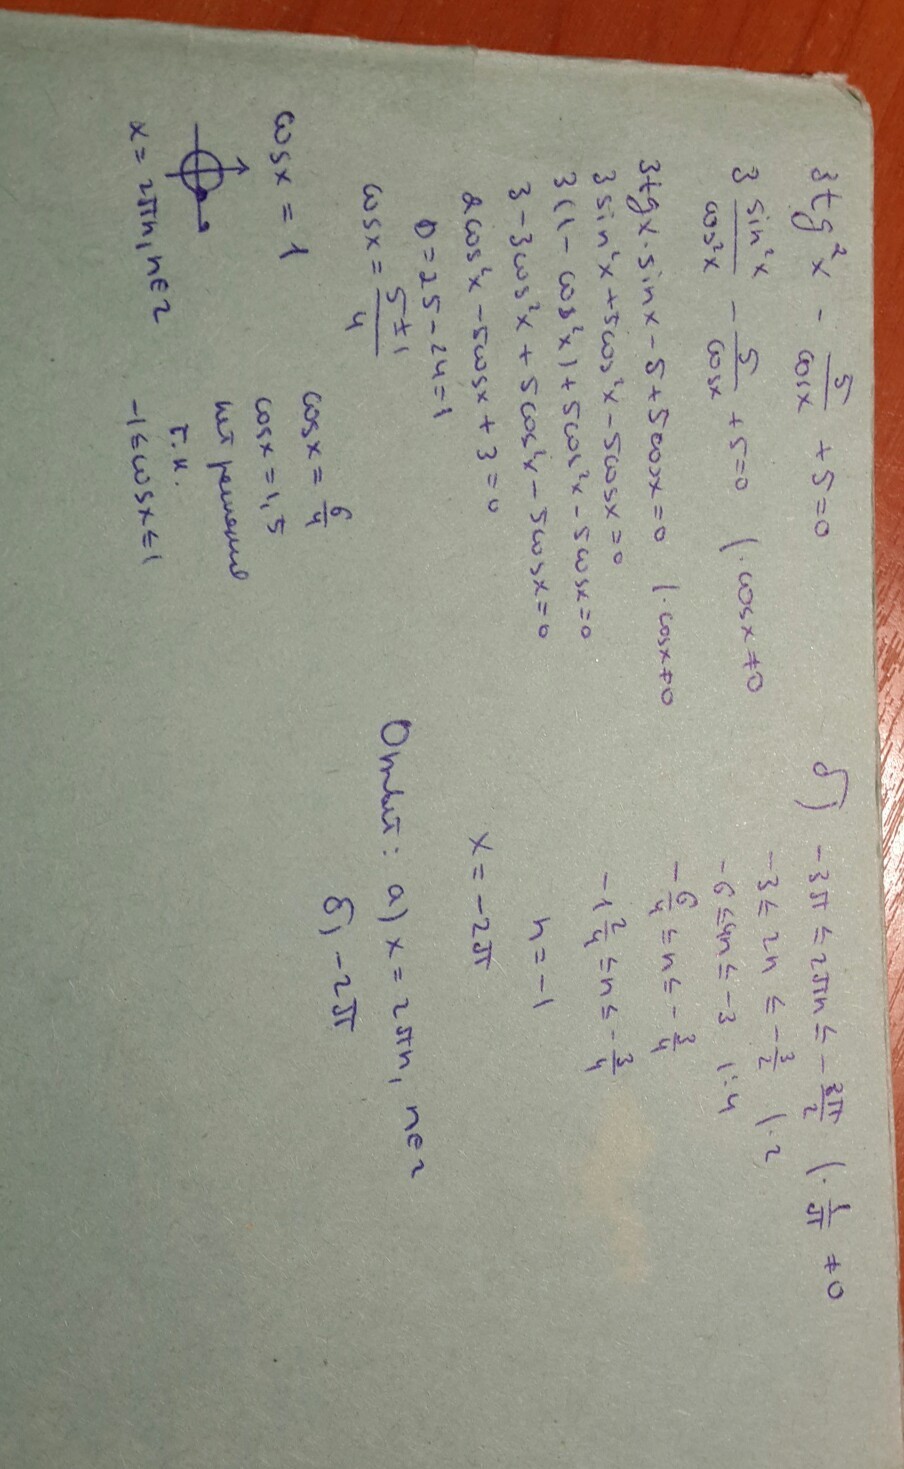 3tg²x - 5/cosx + 5=0
3 sin²x/cos²x - 5/cosx + 5=0 | · cosx≠0
3tgx·sinx - 5 + 5cosx=0 | · cosx≠0
3sin²x + 5cos²x - 5cosx=0
3(1 - cos²x) + 5cos²x - 5cosx=0
3 - 3cos²x + 5cos²x - 5cosx=0
2cos²x - 5cosx + 3=0
D=25-24=1
cosx = 5±1/4
cosx = 1
x = 2πn, n∈z
cosx = 6/4
cosx = 1,5
нет решений
т.к.
-1≤cosx≤1
б) -3π ≤ 2πn ≤ - 3π/2 | · 1/π ≠0
-3 ≤ 2n ≤ - 3/2 | · 2
-6 ≤ 4n ≤ -3 | : 4
- 6/4 ≤ n ≤ - 3/4
-1 2/4 ≤ n ≤ - 3/4
n = -1
x = -2π
Ответ: а) x = 2πn, n∈z
б) -2π